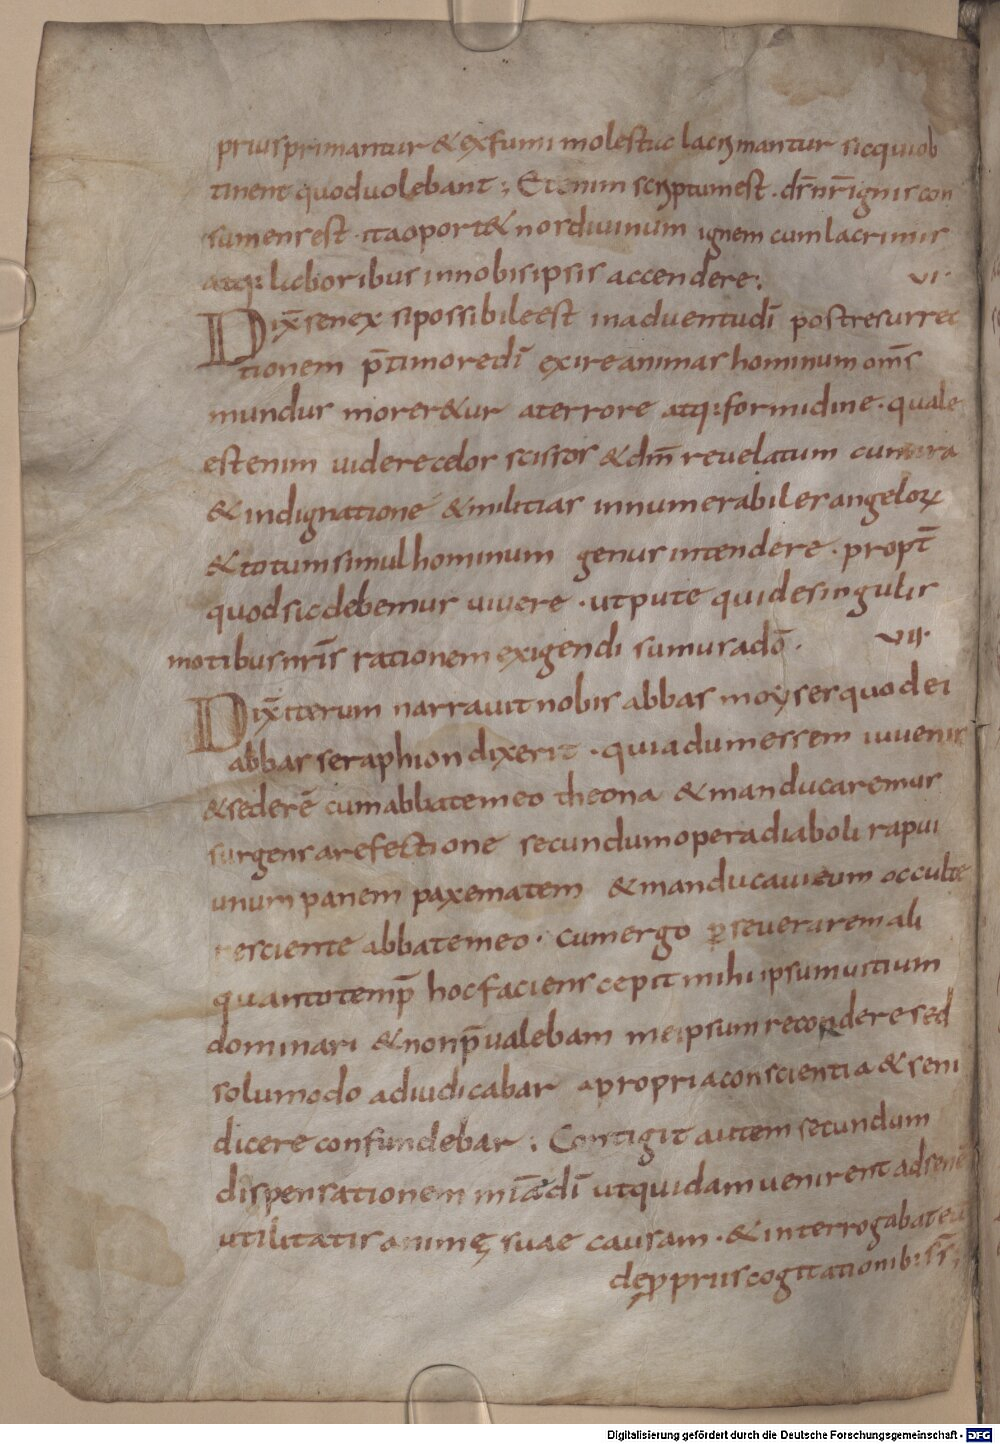 priusprimantur & exfumi molestia lacrimantur sicquiob
tinent quoduolebant; Etenim scriptumest. dr̄nr̄ignis con
sumensest. itaoport& nosdiuinum ignem cumlacrimis
atq: laboribus innobisipsis accendere: VI.
Dix̄ senex sipossibileest inaduentudī postresurrec
tionem p̄timoredī exireanimas hominum om̄s
mundus morer&ur aterrore atq:formidine. quale
estenim uiderecelos scissos &dm̄ reuelatum cumira
&indignatione &militias innumerabiles angeloꝝ
&totumsimulhominum genus intendere. propt̄
quodsicdebemus uiuere. utpute quidesingulis
motibusnr̄is rationem exigendi sumusadō. VII.
Dix̄iterum narrauitnobis abbas moyses quodei
abbas seraphion dixerit. quiadumessem iuuenis
&sederē cumabbatemeo theona &manducaremus
surgensarefectione secundumoperadiaboli rapui
unum panem paxematem &manducauieum occulte
nesciente abbatemeo. cumergo ꝑseuerarem ali
quantotemp̄ hocfaciens cepit mihi ipsumuitium
dominari &nonp̄ualebam meipsumrecondere sed
solumodo adiudicabar apropriaconscientia &seni
dicere confundebar; Contigit autem secundum
dispensationem miāedī utquidamuenirent adsenē
utilitatis animę suae causam. &interrogabateū
deꝓpriiscogitationib: ss̄;
Digitalisierung gefördert durch die Deutsche Forschungsgemeinschaft - DFG